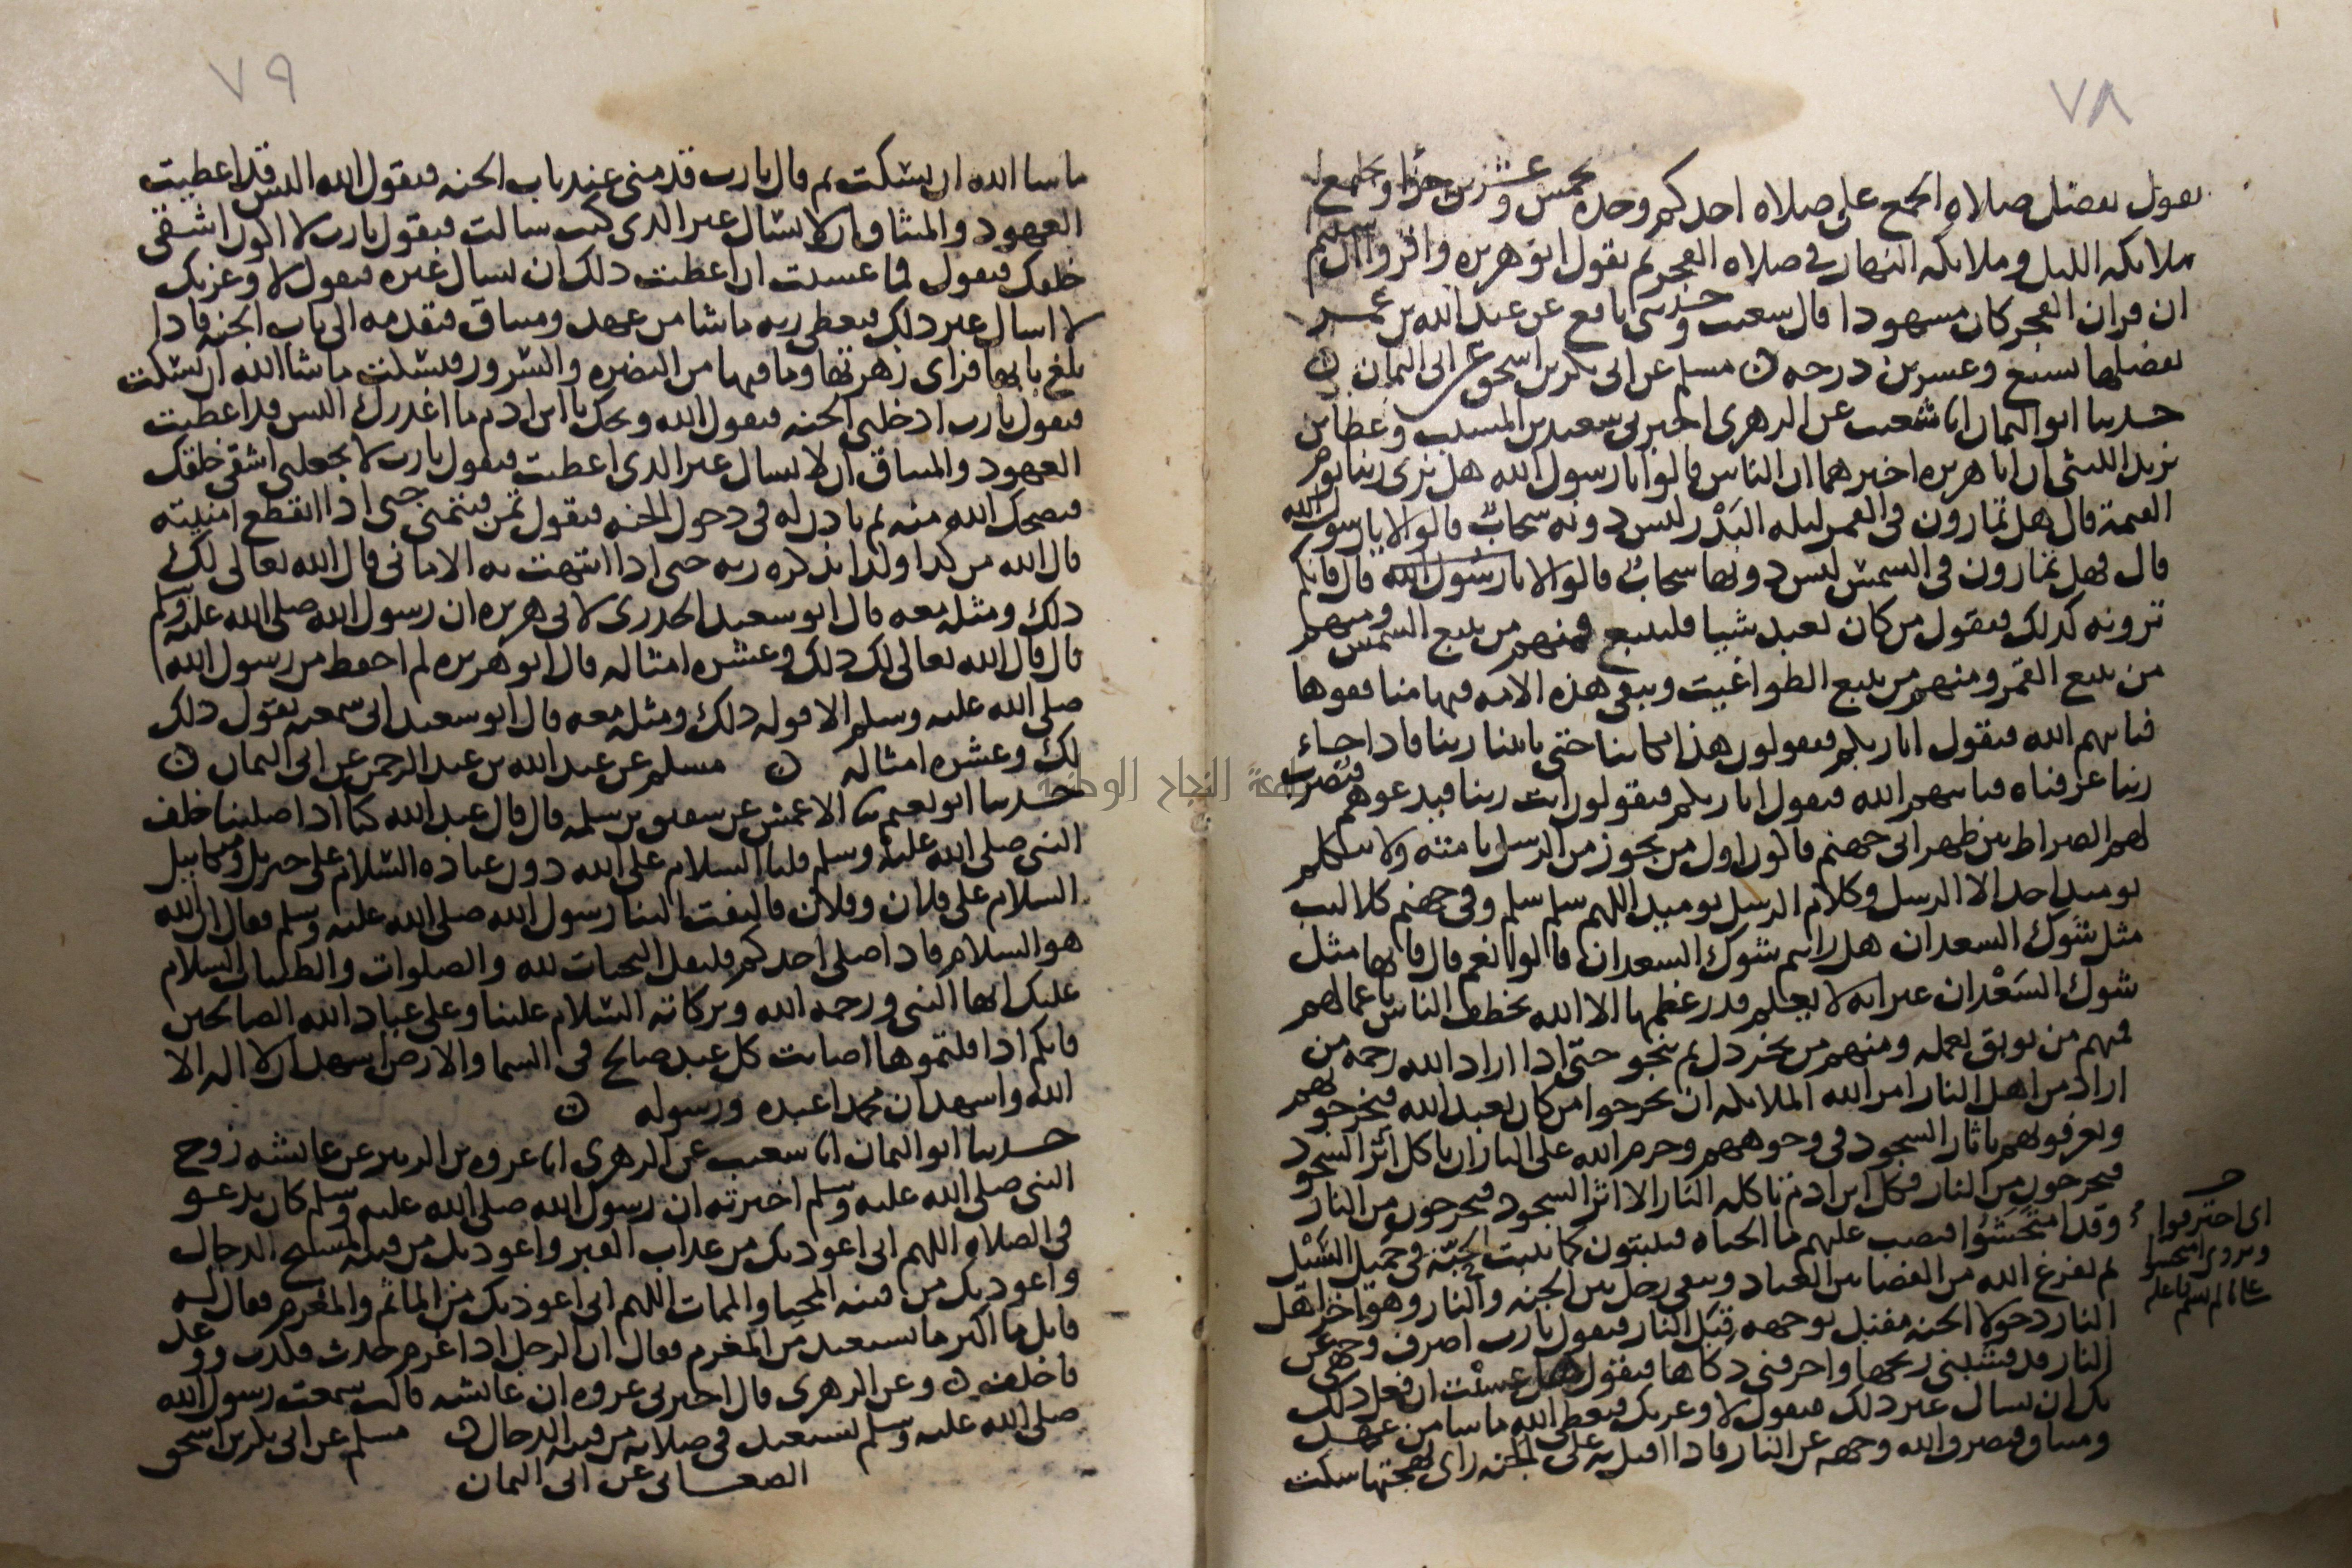 ٧٨
يقول تفضل صلاه الجمع على صلاه احدكم وحده بخمس وعشرين جزا وتجتمع
ملايكه الليل وملايكه النهار في صلاه الفجر ثم يقول ابو هريره واقروا ان شيتم
ان قران الفجر كان مشهودا قال شعيب وحدثني نافع عن عبد الله بن عمر
تفضلها بسبع وعشرين درجه مسلم عن ابي بكر بن اسحق عن ابي اليمان
حدثنا ابو اليمان انا شعيب عن الزهري اخبرني سعيد بن المسيب وعطا بن
يزيد الليثي ان ابا هريره اخبرهما ان الناس قالوا يا رسول الله هل نرى ربنا يوم
القيمة قال هل تمارون في القمر ليله البَدْر ليس دونه سحابٌ قالوا لا يا رسول الله
قال فهل تمارون في الشمس ليس دونها سحابٌ قالوا لا يا رسول الله قال فانكم
ترونه كذلك فيقول من كان يعبد شييا فليتبع فمنهم من يتبع الشمس ومنهم
من يتبع القمر ومنهم من يتبع الطواغيت وتبقى هذه الامه فيها منافقوها
فياتيهم الله فيقول انا ربكم فيقولون هذا مكاننا حتى ياتينا ربنا فاذا جاء
ربنا عرفناه فياتيهم الله فيقول انا ربكم فيقولون انت ربنا فيدعوهم فيُضرب
لهم الصراط بين ظهراني جهنم فاكون اول من يجوز من الرسل بامته ولا يتكلم
يوميذ احد الا الرسل وكلام الرسل يوميذ اللهم سلم سلم وفي جهنم كلاليب
مثل شوك السعدان هل رايتم شوك السعدان قالوا نعم قال فانها مثل
شوك السَعْدان غير انه لا يعلم قدر عظمها الا الله تخطف الناس باعمالهم
فمنهم من يوبق بعمله ومنهم من يخردل ثم ينجو حتى اذا اراد الله رحمه من
اراد من اهل النار امر الله الملايكه ان يخرجوا من كان يعبد الله فيخرجونهم
ويعرفونهم باثار السجود في وجوههم وحرم الله على النار ان تاكل اثر السجود
فيخرجون من النار فكل ابن ادم تاكله النار الا اثر السجود فيخرجون من النار
وقد امتَحَشُوا فيصب عليهم ما الحياه فينبتون كما تنبت الحِبّه في حميل السَّيْل
ثم يفرغ الله من القضا بين العباد ويبقى رجل بين الجنه والنار وهو اخر اهل
النار دخولا الجنه مقبل بوجهه قِبَل النار فيقول يارب اصرف وجهي عن
النار قد قشبني ريحها واحرقني ذكاها فيقول هل عسيت ان فعل ذلك
بك ان تسال غير ذلك فيقول لا وعزتك فيعطي الله ما شا من عهد
وميثاق فيصرف الله وجهه عن النار فاذا اقبل به على الجنه راى بهجتها سكت
اى احترقوا
ويروى امتحشوا
٧٩
ما شا الله ان يسكت ثم قال يارب قدمني عند باب الجنه فيقول الله اليس قد اعطيت
العهود والميثاق ان لا تسال غير الذي كنت سالت فيقول يارب لا اكون اشقى
خلقك فيقول فما عسيت ان اعطيت ذلك ان تسال غيره فيقول لا وعزتك
لا اسال غير ذلك فيعطي ربه ما شا من عهد وميثاق فيقدمه الى باب الجنه فاذا
بلغ بابها فراى زهرتها وما فيها من النضره والسرور فيسكت ما شا الله ان يسكت
فيقول يارب ادخلني الجنه فيقول الله ويحك يا ابن ادم ما اغدرك اليس قد اعطيت
العهود والميثاق ان لا تسال غير الذي اعطيت فيقول يارب لا تجعلني اشقى خلقك
فيضحك الله منه ثم ياذن له في دخول الجنه فيقول تمن فيتمنى حتى اذا انقطع امنيته
قال الله من كذا وكذا يذكره ربه حتى اذا انتهت به الاماني قال الله تعالى لك
ذلك ومثله معه قال ابو سعيد الخدري لابي هريره ان رسول الله صلى الله عليه وسلم
قال قال الله تعالى لك ذلك وعشره امثاله قال ابو هريره لم احفظ من رسول الله
صلى الله عليه وسلم الا قوله ذلك ومثله معه قال ابو سعيد اني سمعته يقول ذلك
لك وعشره امثاله مسلم عن عبد الله بن عبد الرحمن عن ابي اليمان
حدثنا ابو نعيم نا الاعمش عن شقيق بن سلمه قال قال عبد الله كنا اذا صلينا خلف
النبي صلى الله عليه وسلم قلنا السلام على الله دون عباده السلام على جبريل وميكاييل
السلام على فلان وفلان فالتفت الينا رسول الله صلى الله عليه وسلم فقال ان الله
هو السلام فاذا صلى احدكم فليقل التحيات لله والصلوات والطيبات السلام
عليك ايها النبي ورحمه الله وبركاته السلام علينا وعلى عباد الله الصالحين
فانكم اذا قلتموها اصابت كل عبد صالح في السما والارض اشهد ان لا اله الا
الله واشهد ان محمدا عبده ورسوله
حدثنا ابو اليمان انا شعيب عن الزهري انا عروه بن الزبير عن عايشه زوج
النبي صلى الله عليه وسلم اخبرته ان رسول الله صلى الله عليه وسلم كان يدعو
في الصلاه اللهم اني اعوذ بك من عذاب القبر واعوذ بك من فتنه المسيح الدجال
واعوذ بك من فتنه المحيا والممات اللهم اني اعوذ بك من الماثم والمغرم فقال له
قايل ما اكثر ما تستعيذ من المغرم فقال ان الرجل اذا غرم حدث فكذب ووعد
فاخلف وعن الزهري قال اخبرني عروه ان عايشه قالت سمعت رسول الله
صلى الله عليه وسلم يستعيذ في صلاته من فتنه الدجال مسلم عن ابي بكر بن اسحق
الصغاني عن ابي اليمان
جامعة النجاح الوطنية